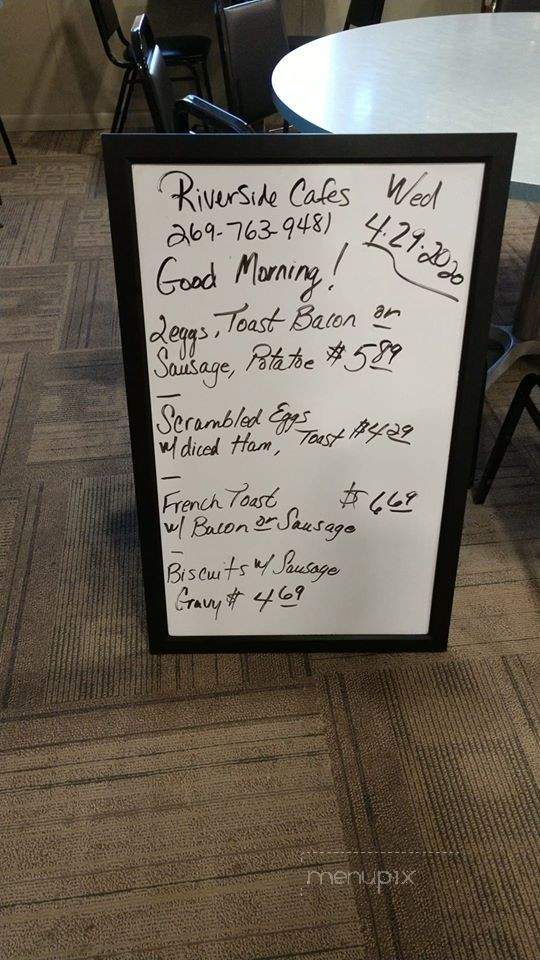 Riverside Cafes Wed
269-763-9481 4.29.2020
Good Morning!
2eggs, Toast Bacon or
Sausage, Potatoe $5 89
Scrambled Eggs
w/ diced Ham, Toast $4 29
French Toast $6 69
w/ Bacon or Sausage
Biscuits w/ Sausage
Gravy $ 4 69
menupix